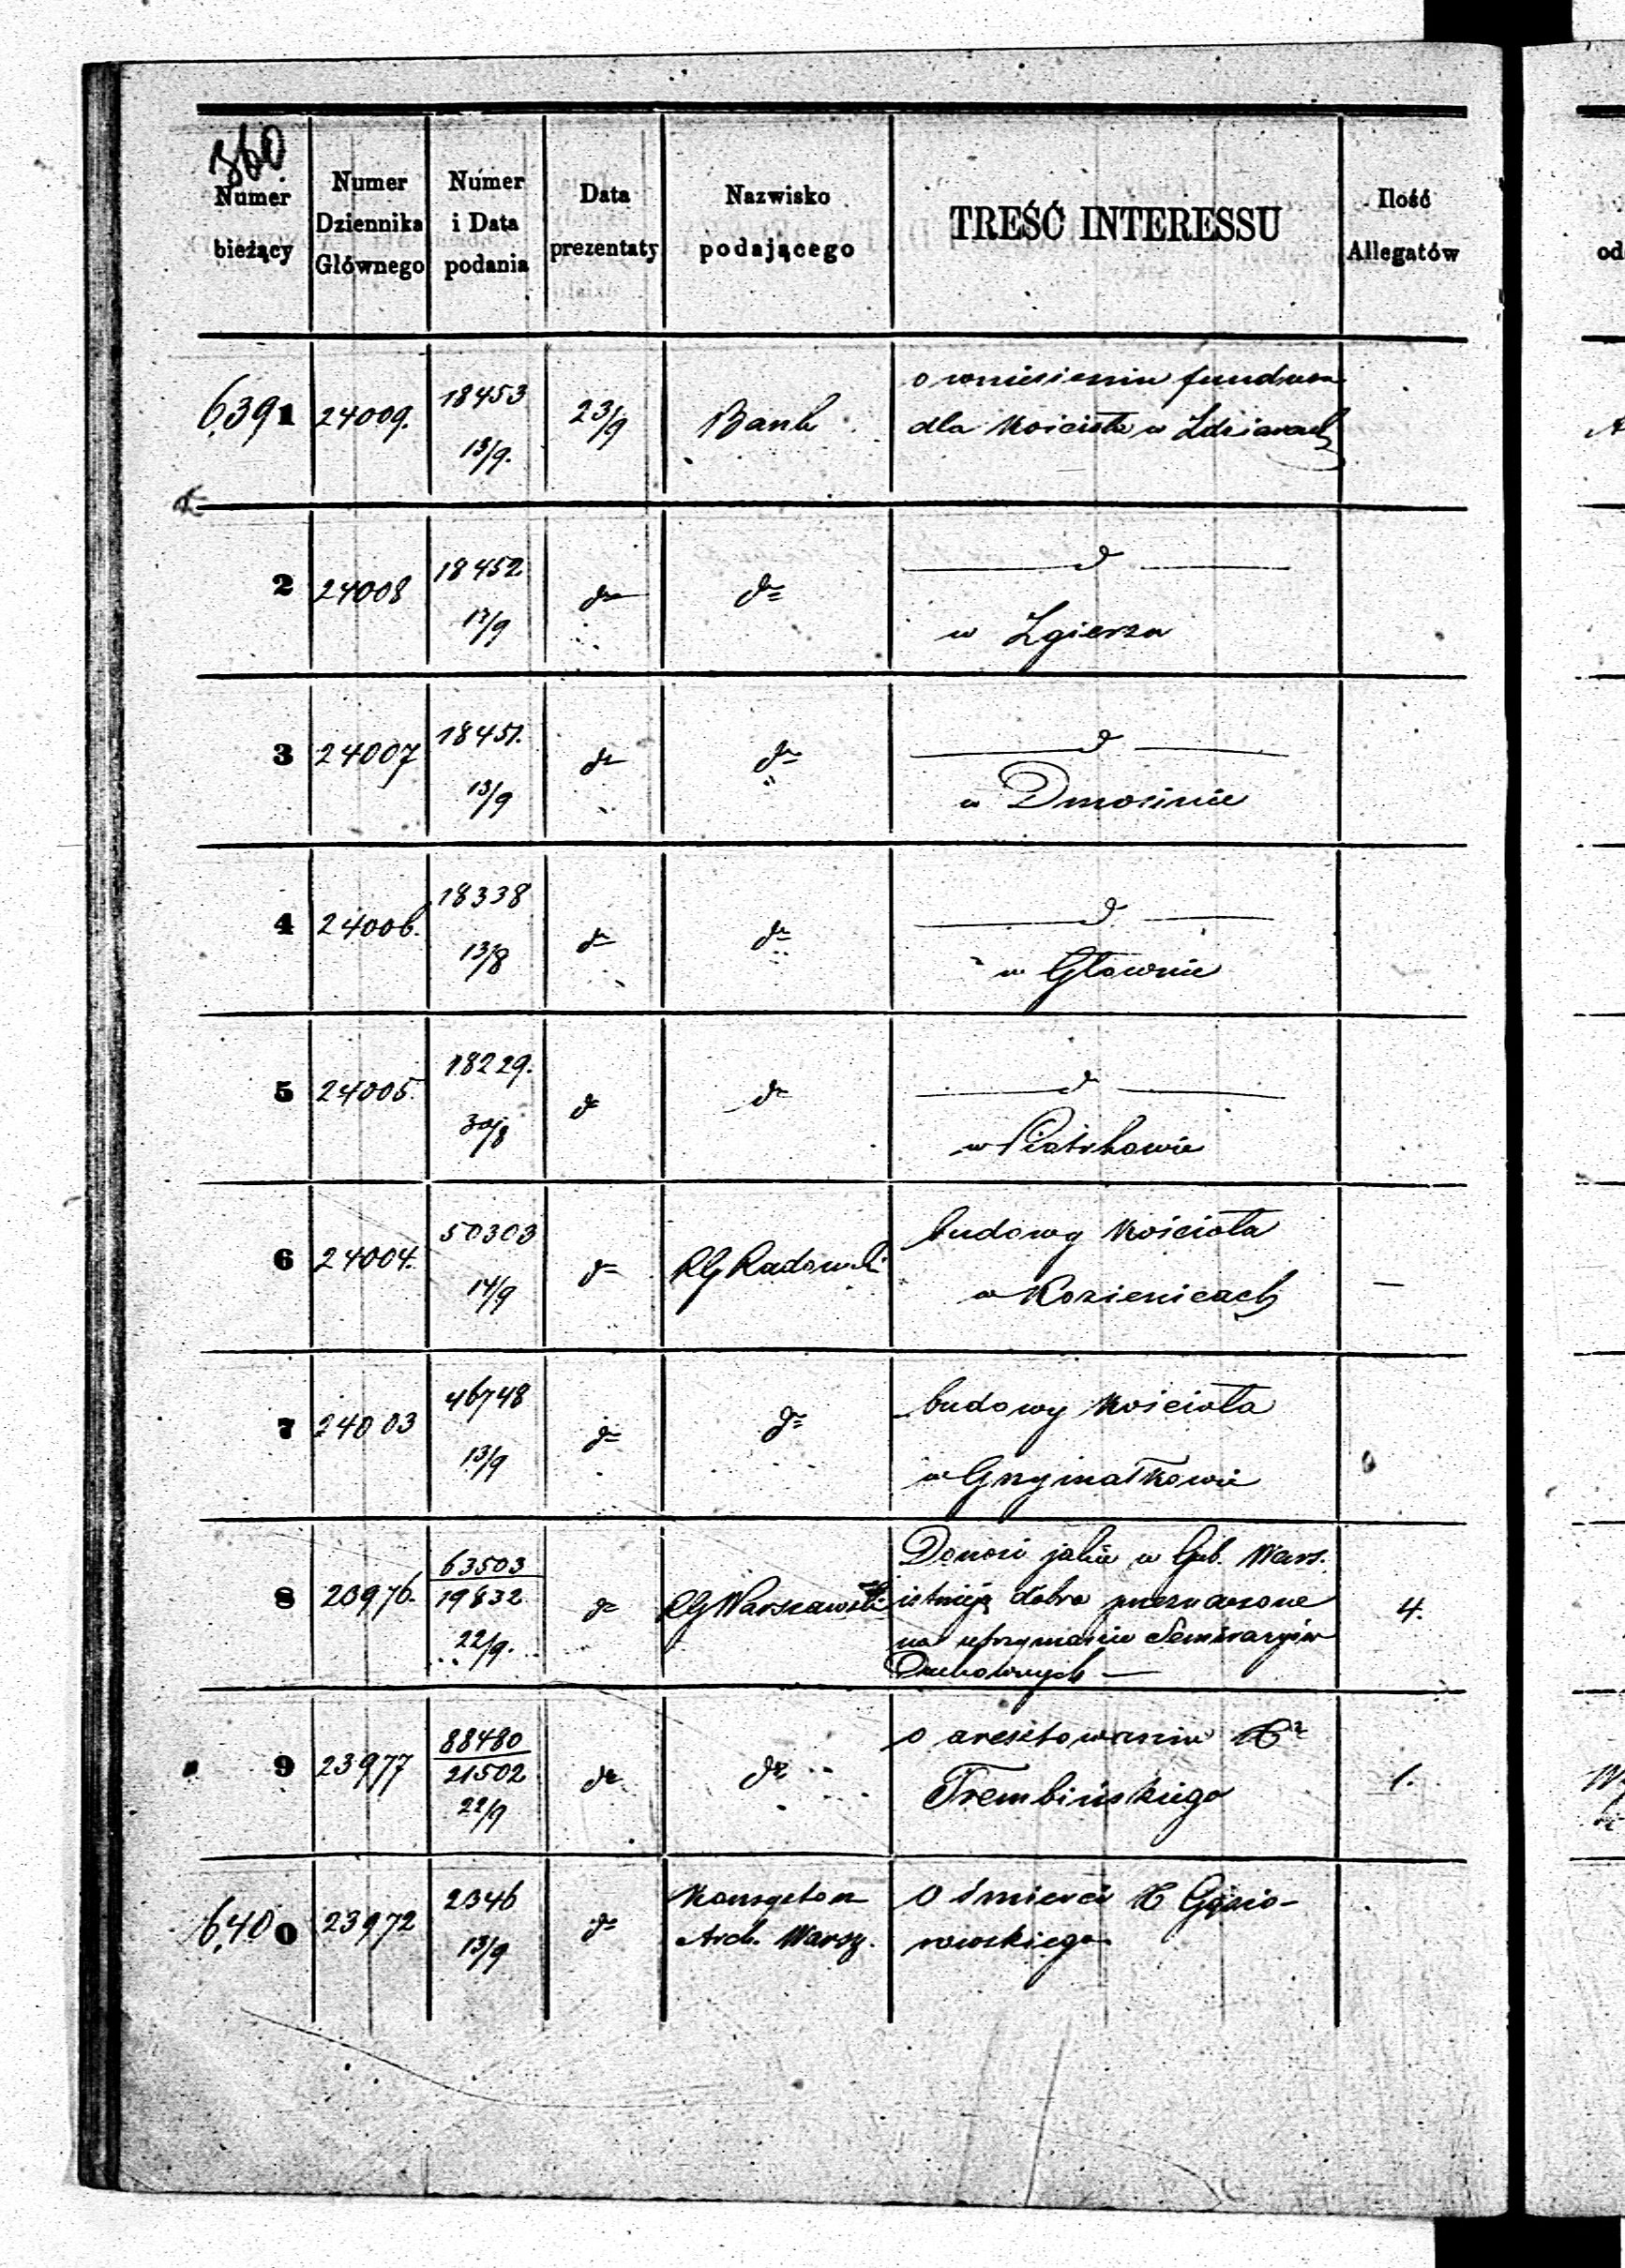 360
Numer bieżący
Numer Dziennika Głównego
Numer i Data podania
Data prezentaty
Nazwisko podającego
TREŚĆ INTERESSU
Ilość Allegatów
6391 24009. 18453 13/9. 23/9 Bank o wniesieniu fundusza
dla Kościoła w Zdziarach
2 24008 18452 13/9 do do d
w Zgierzu
3 24007 18451. 13/9 do do d
w Dmosinie
4 24006. 18338 13/8 do do d
w Głownie
5 24005. 18229. 30/8 do do d
w Piatrkowie
6 24004. 50303 14/9 do RG Radomski budowy Kościoła
w Kozienicach —
7 24003 46748 13/9 do do budowy Kościoła
w Grzymałkowie
8 23976. 63503 19832 22/9. do RG Warszawski Donosi jakie w Gub. Wars.
istnieją dobra przeznaczone 4.
na utrzymanie Seminaryów
Duchownych —
9 23977 88480 21502 22/9 do do o aresztowaniu X
Trembińskiego 1.
6400 23972 2346 13/9 do Konsystorz O śmierci X Gąsio-
Arch. Warsz. rowskiego